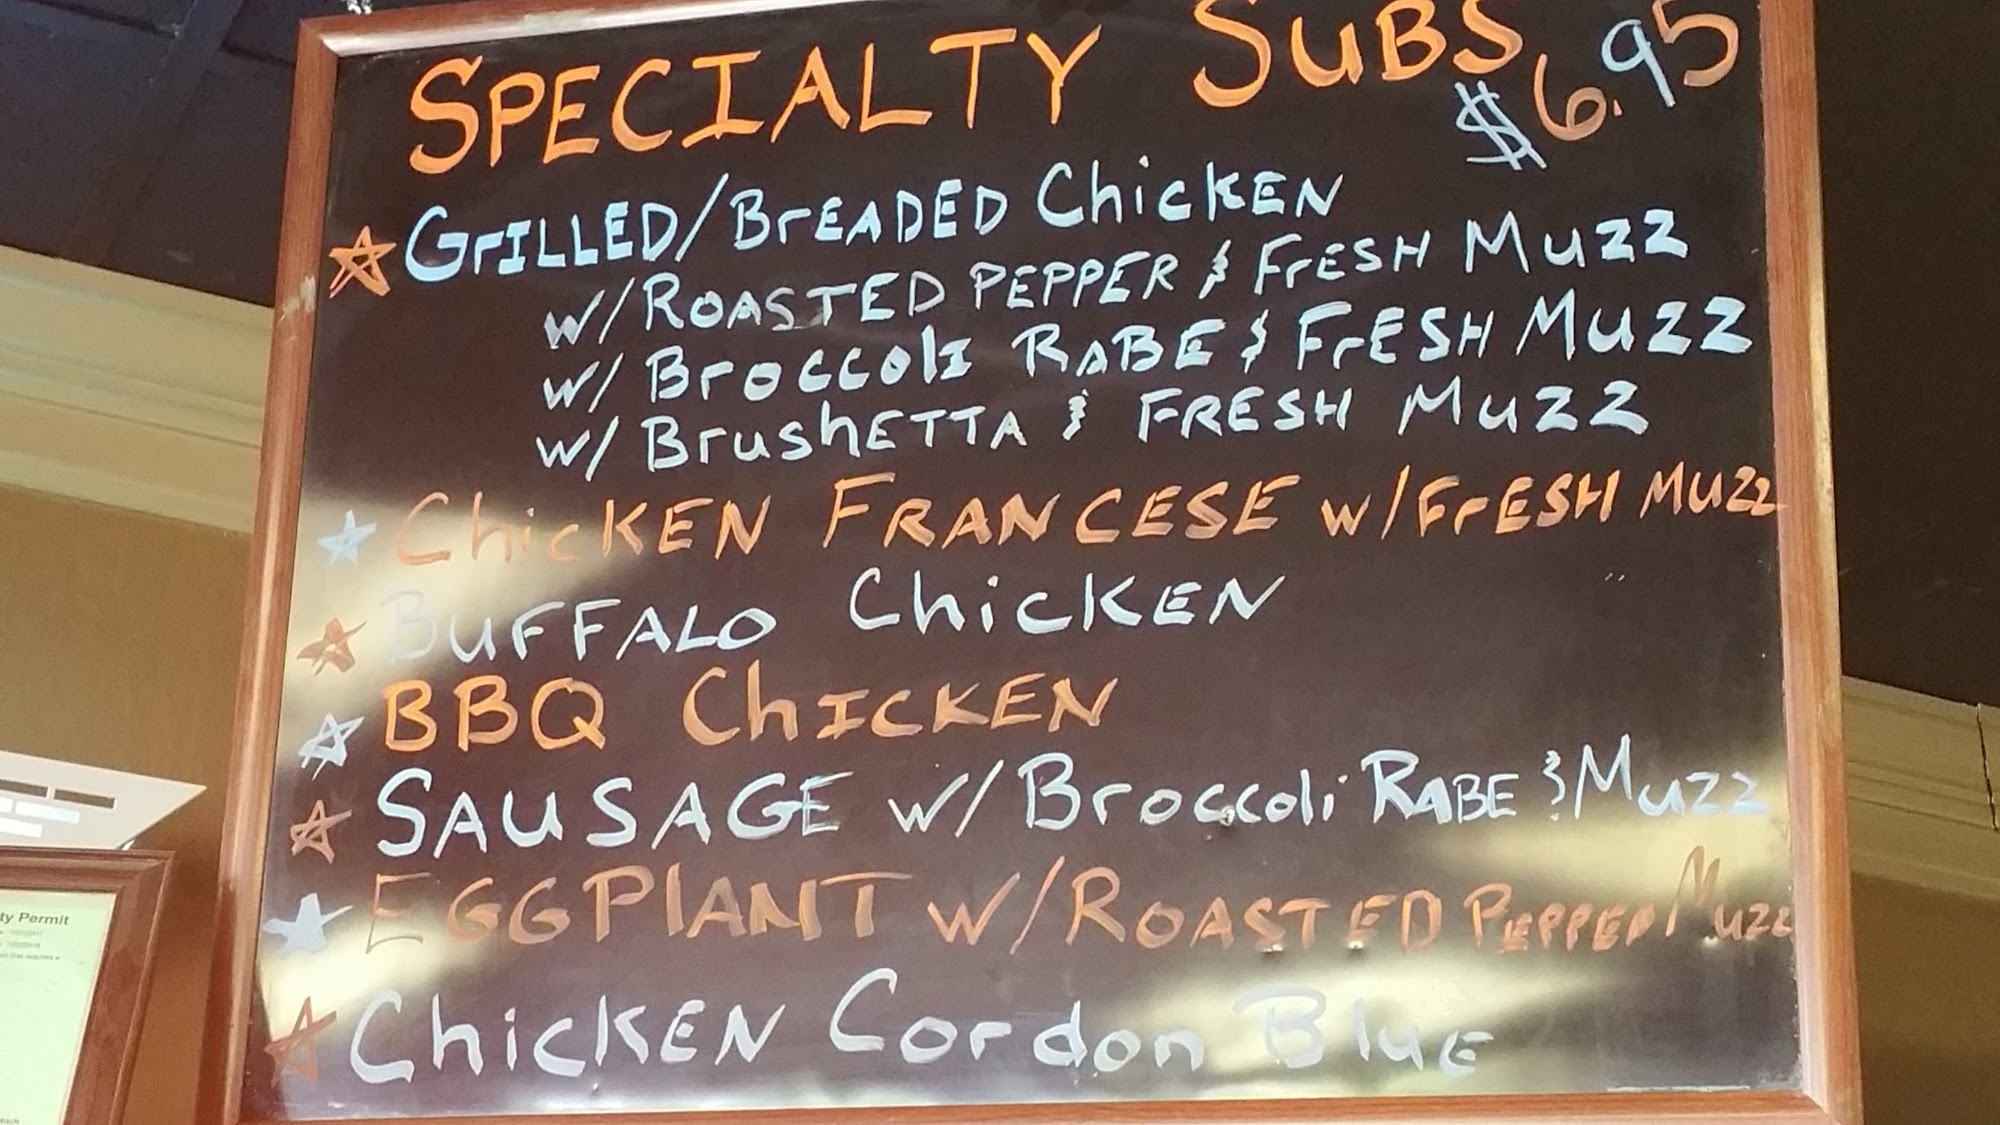 SPECIALTY SUBS $6.95
GrILLED/BrEADED ChickEN
w/ROASTED PEPPER & FrESH MuZZ
w/BroccolI RABE & FrESH MuZZ
w/BrushETTA & FRESH MuZZ
ChicKEN FRANCESE w/FrESH MuZZ
BuFFALO ChicKEN
BBQ ChICKEN
SAUSAGE w/Broccoli RABE & MuZZ
EGGPlANT w/ROASTED PEPPER MuZZ
ChicKEN Cordon BluE
ty Permit